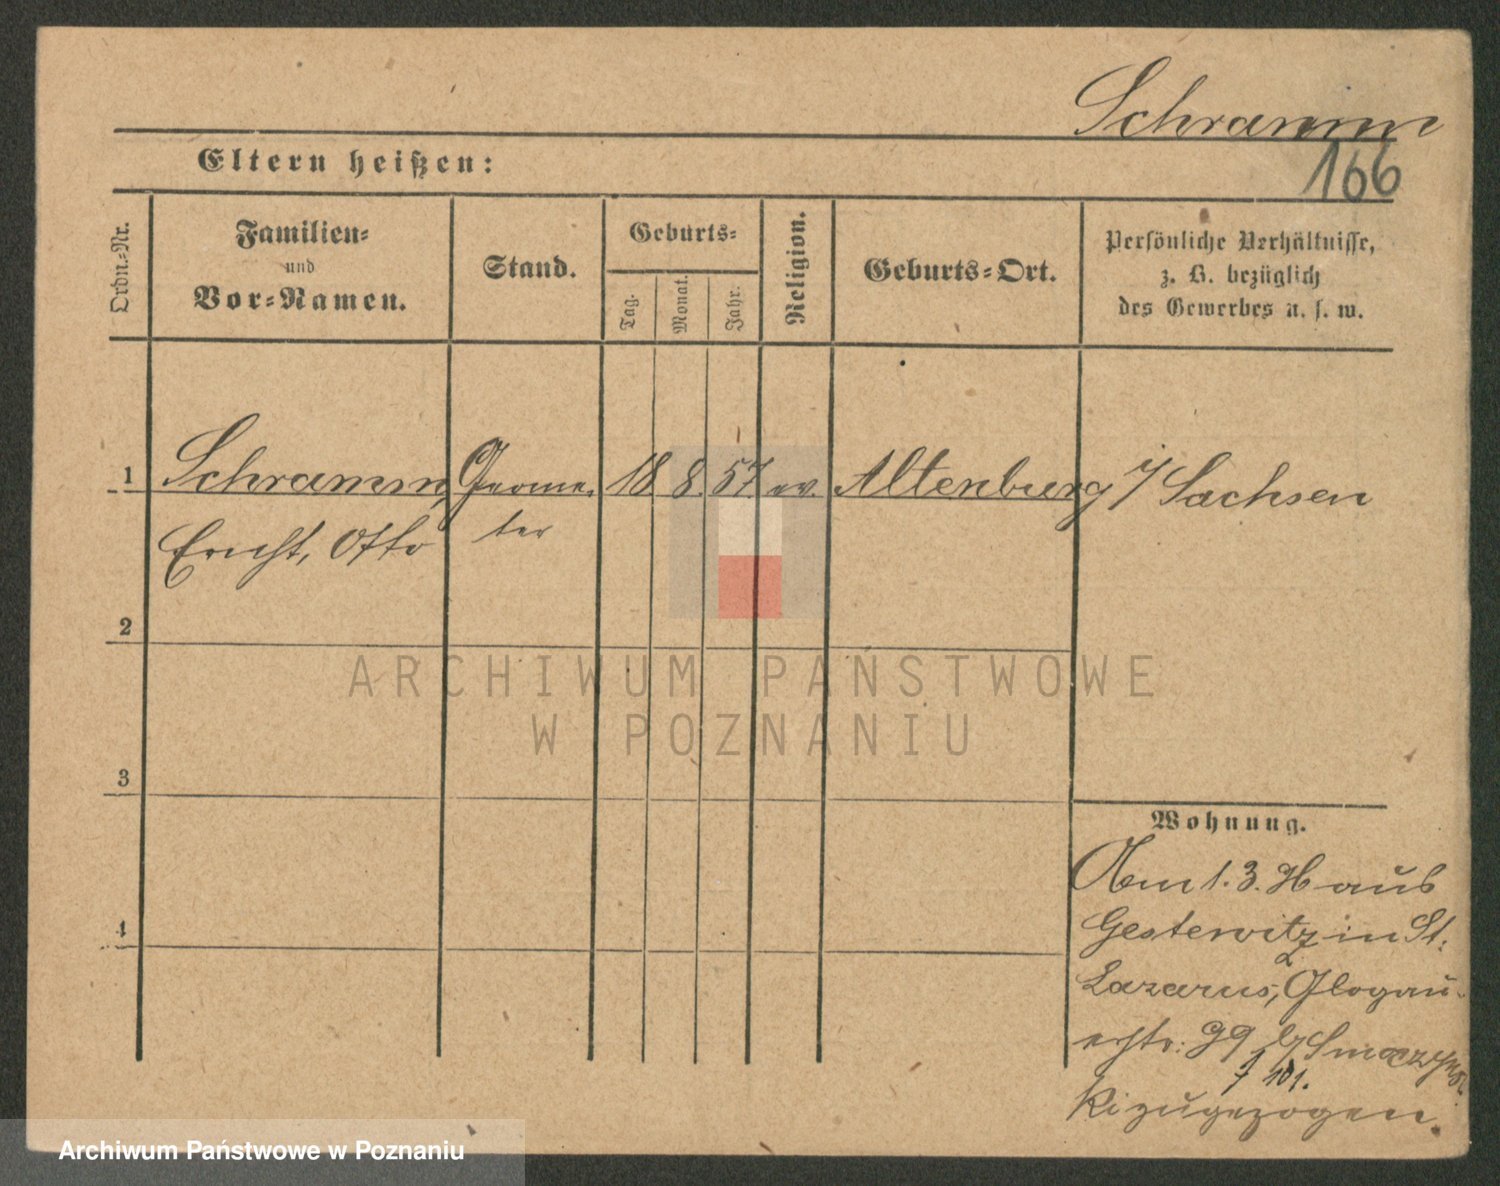 Schramm
166
Eltern heißen:
Ordn.-Nr.
Familien-
und
Vor-Namen.
Stand.
Geburts-
Tag.
Monat.
Jahr.
Religion.
Geburts-Ort.
Persönliche Verhältnisse,
z. B. bezüglich
des Gewerbes u. s. w.
1 Schramm, Geome- 18 8. 57 ev. Altenburg i/ Sachsen
Ernst, Otto ter
2
ARCHIWUM PAŃSTWOWE
W POZNANIU
3
Wohnung.
Am 1. 3. aus
Gestewitz in St.
4
Lazarus, Glogau-
erstr. 99 b/ Smoczyns-
101.
ki zugezogen.
Archiwum Państwowe w Poznaniu